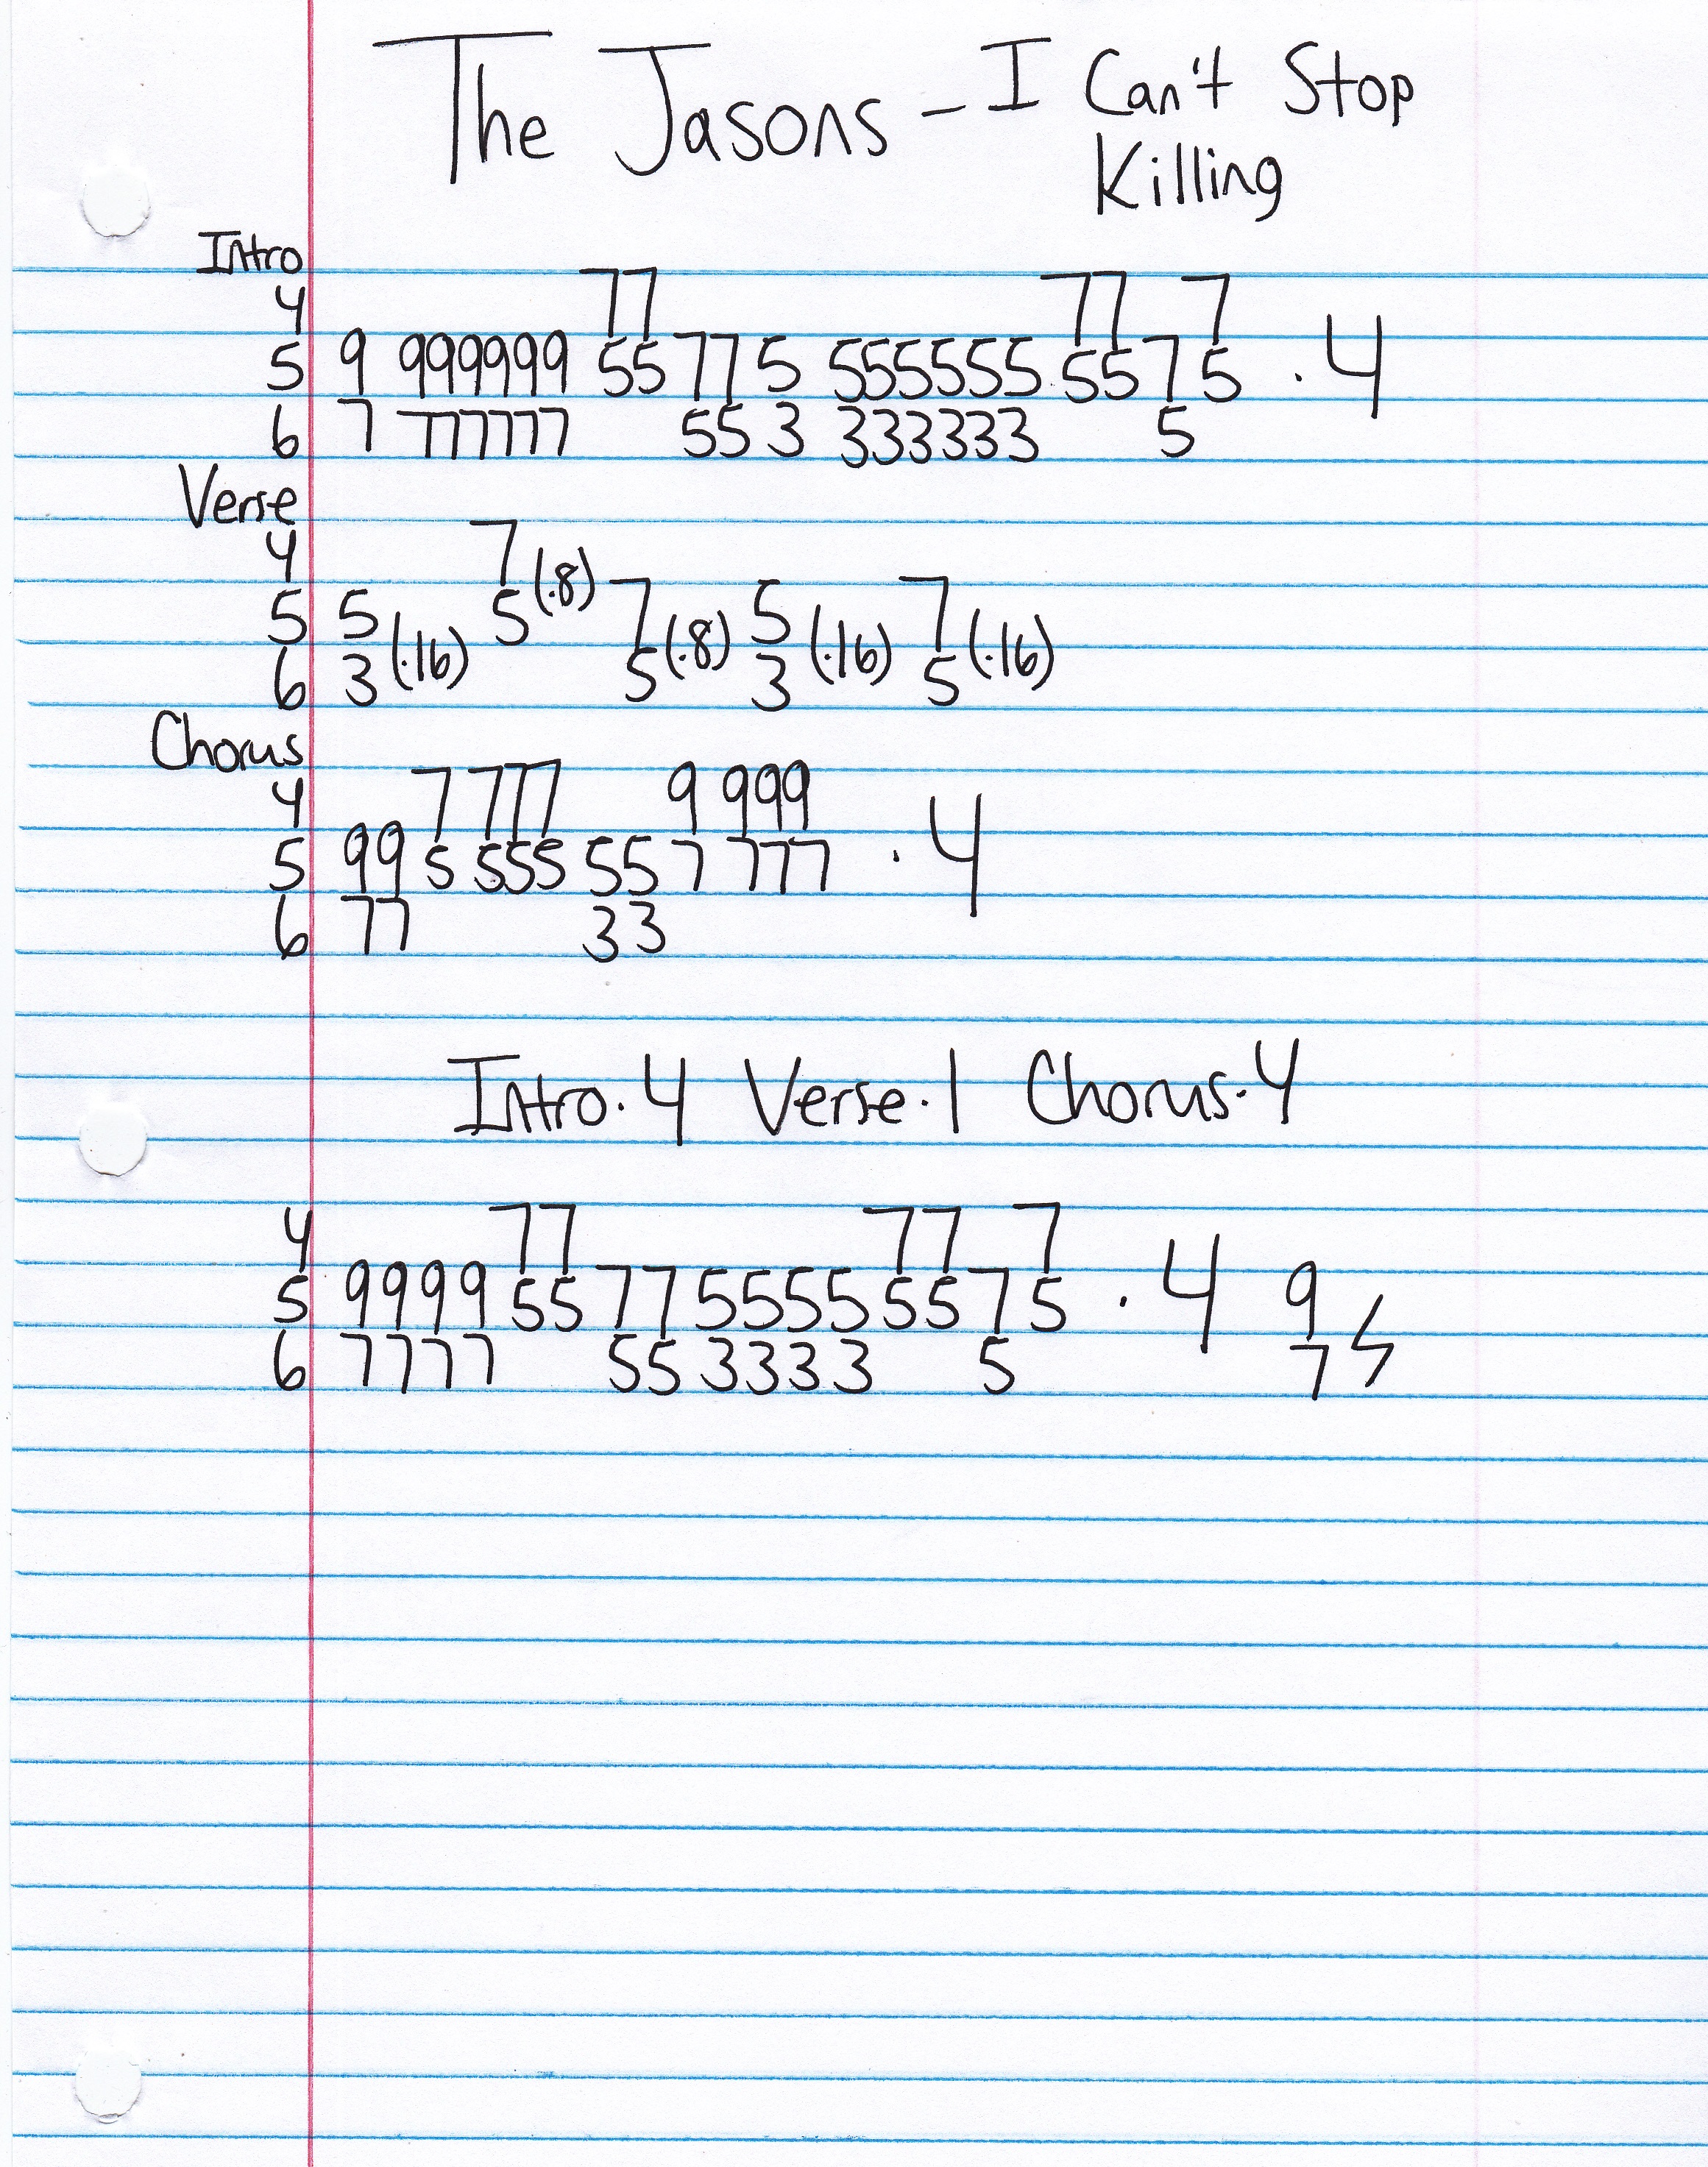 The Jasons - I Can't Stop
Killing
Intro
4 77 77 7
5 9 999999 55 77 5 555555 55 7 5 . 4
6 7 777777 55 3 333333 5
Verse
4 7
5 5 5 (.8) 7 5 7
6 3 (.16) 5 (.8) 3 (.16) 5 (.16)
Chorus
4 7 777 9 999
5 99 5 555 55 7 777 . 4
6 77 33
Intro.4 Verse.1 Chorus.4
4 77 77 7
5 9999 55 77 5555 55 7 5 . 4 9
6 7777 55 3333 5 7